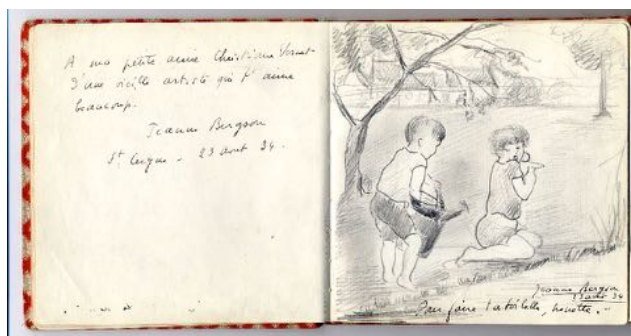 A ma petite amie Christiane
D'une vieille artiste qui l'aime
beaucoup.
Jeanne Bergson
St Cergue - 23 août 34.
Jeanne Bergson
23 août 34
Pour faire ta toilette, minette.-